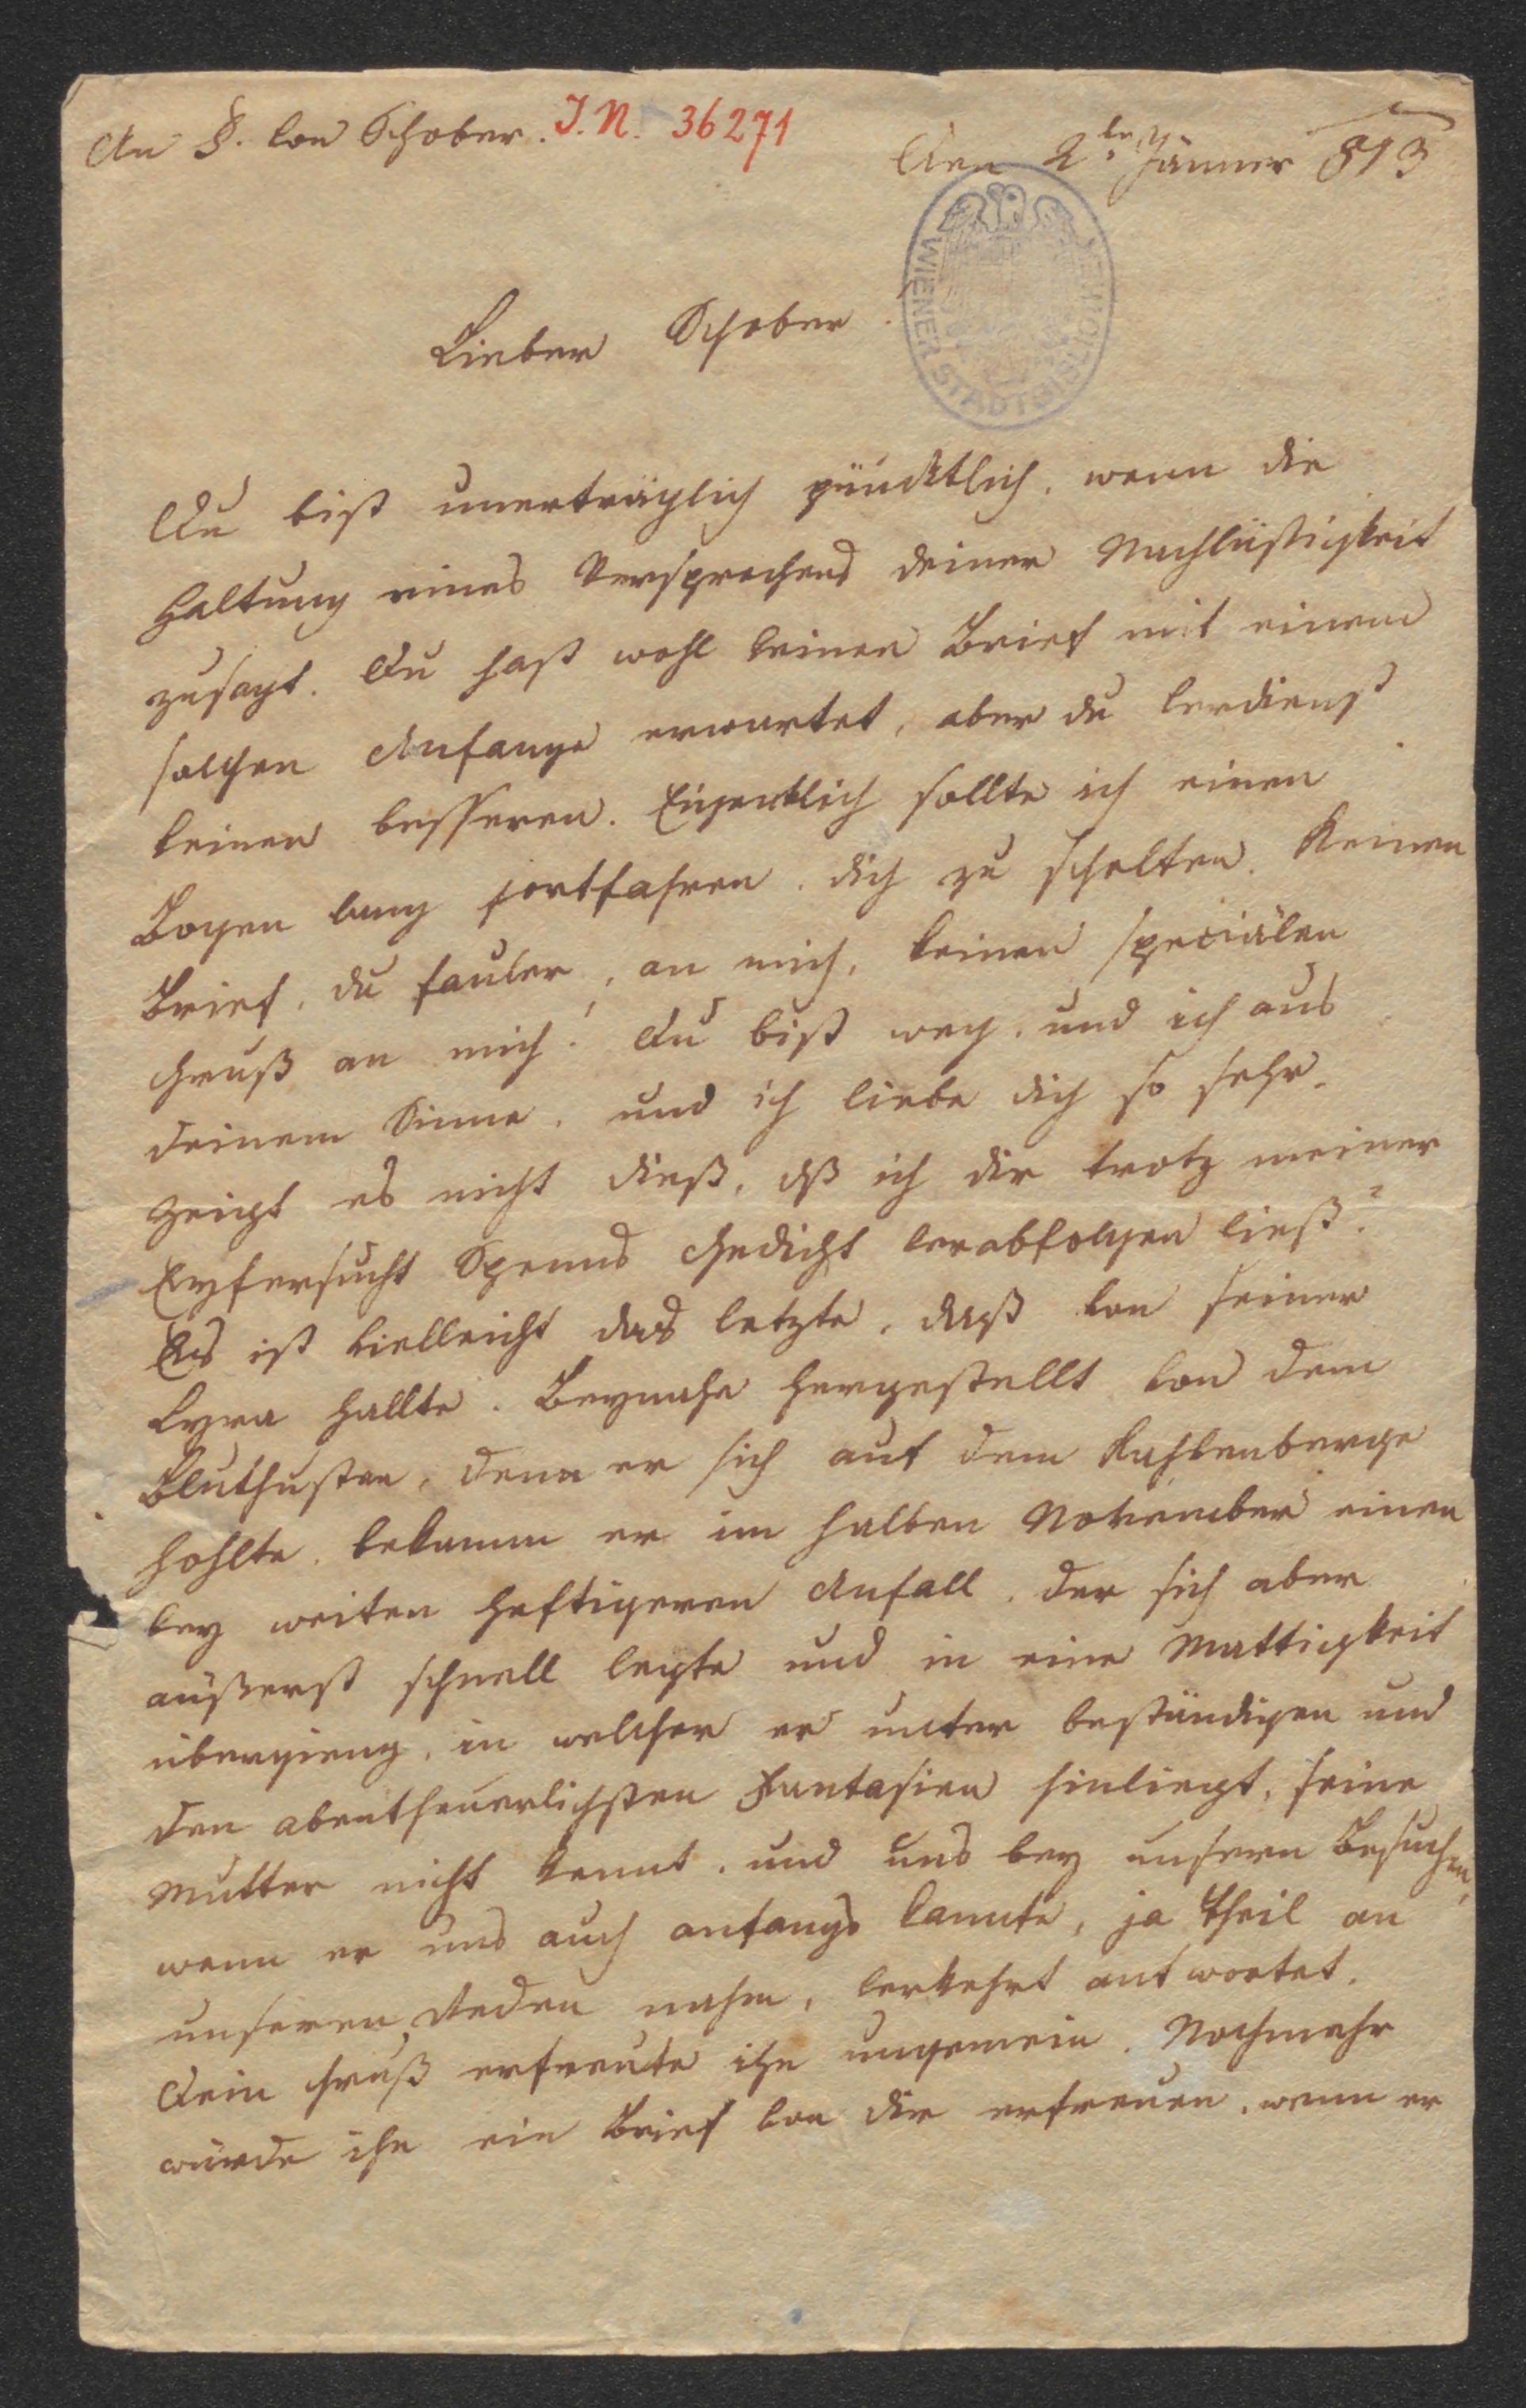 An F. von Schober. I. N. 36271
Den 2ten Jänner 813
WIENER STADTBIBLIOTHEK
Lieber Schober.
Du bist unerträglich pünktlich, wenn die
Haltung eines Versprechens deiner Nachläßigkeit
zusagt. Du hast wohl keinen Brief mit einem
solchen Anfange erwartet, aber du verdienst
keinen besseren. Eigentlich sollte ich einen
Bogen lang fortfahren, dich zu schelten. Keinen
Brief, du fauler, an mich, keinen speciälen
Gruß an mich! Du bist weg, und ich aus
deinem Sinne, und ich liebe dich so sehr.
Zeigt es nicht dieß, dß ich dir trotz meiner
Eyfersucht Spenns Gedicht verabfolgen ließ?
Es ist vielleicht das letzte, daß von seiner
Lyra hallte. Beynahe hergestellt von dem
Bluthusten, denn er sich auf dem Kahlenberge
hohlte, bekamm er im halben November einen
bey weiten heftigeren Anfall, der sich aber
äußerst schnell legte und in eine Mattigkeit
übergieng, in welcher er unter beständigen und
den abentheuerlichsten Fantasien hinliegt, seine
Mutter nicht kennt, und uns bey unsern Besuchen,
wenn er uns auch anfangs kannte, ja Theil an
unseren Reden nahm, verkehrt antwortet.
Dein Gruß erfreute ihn ungemein. Nochmehr
würde ihn ein Brief von dir erfreuen, wenn er